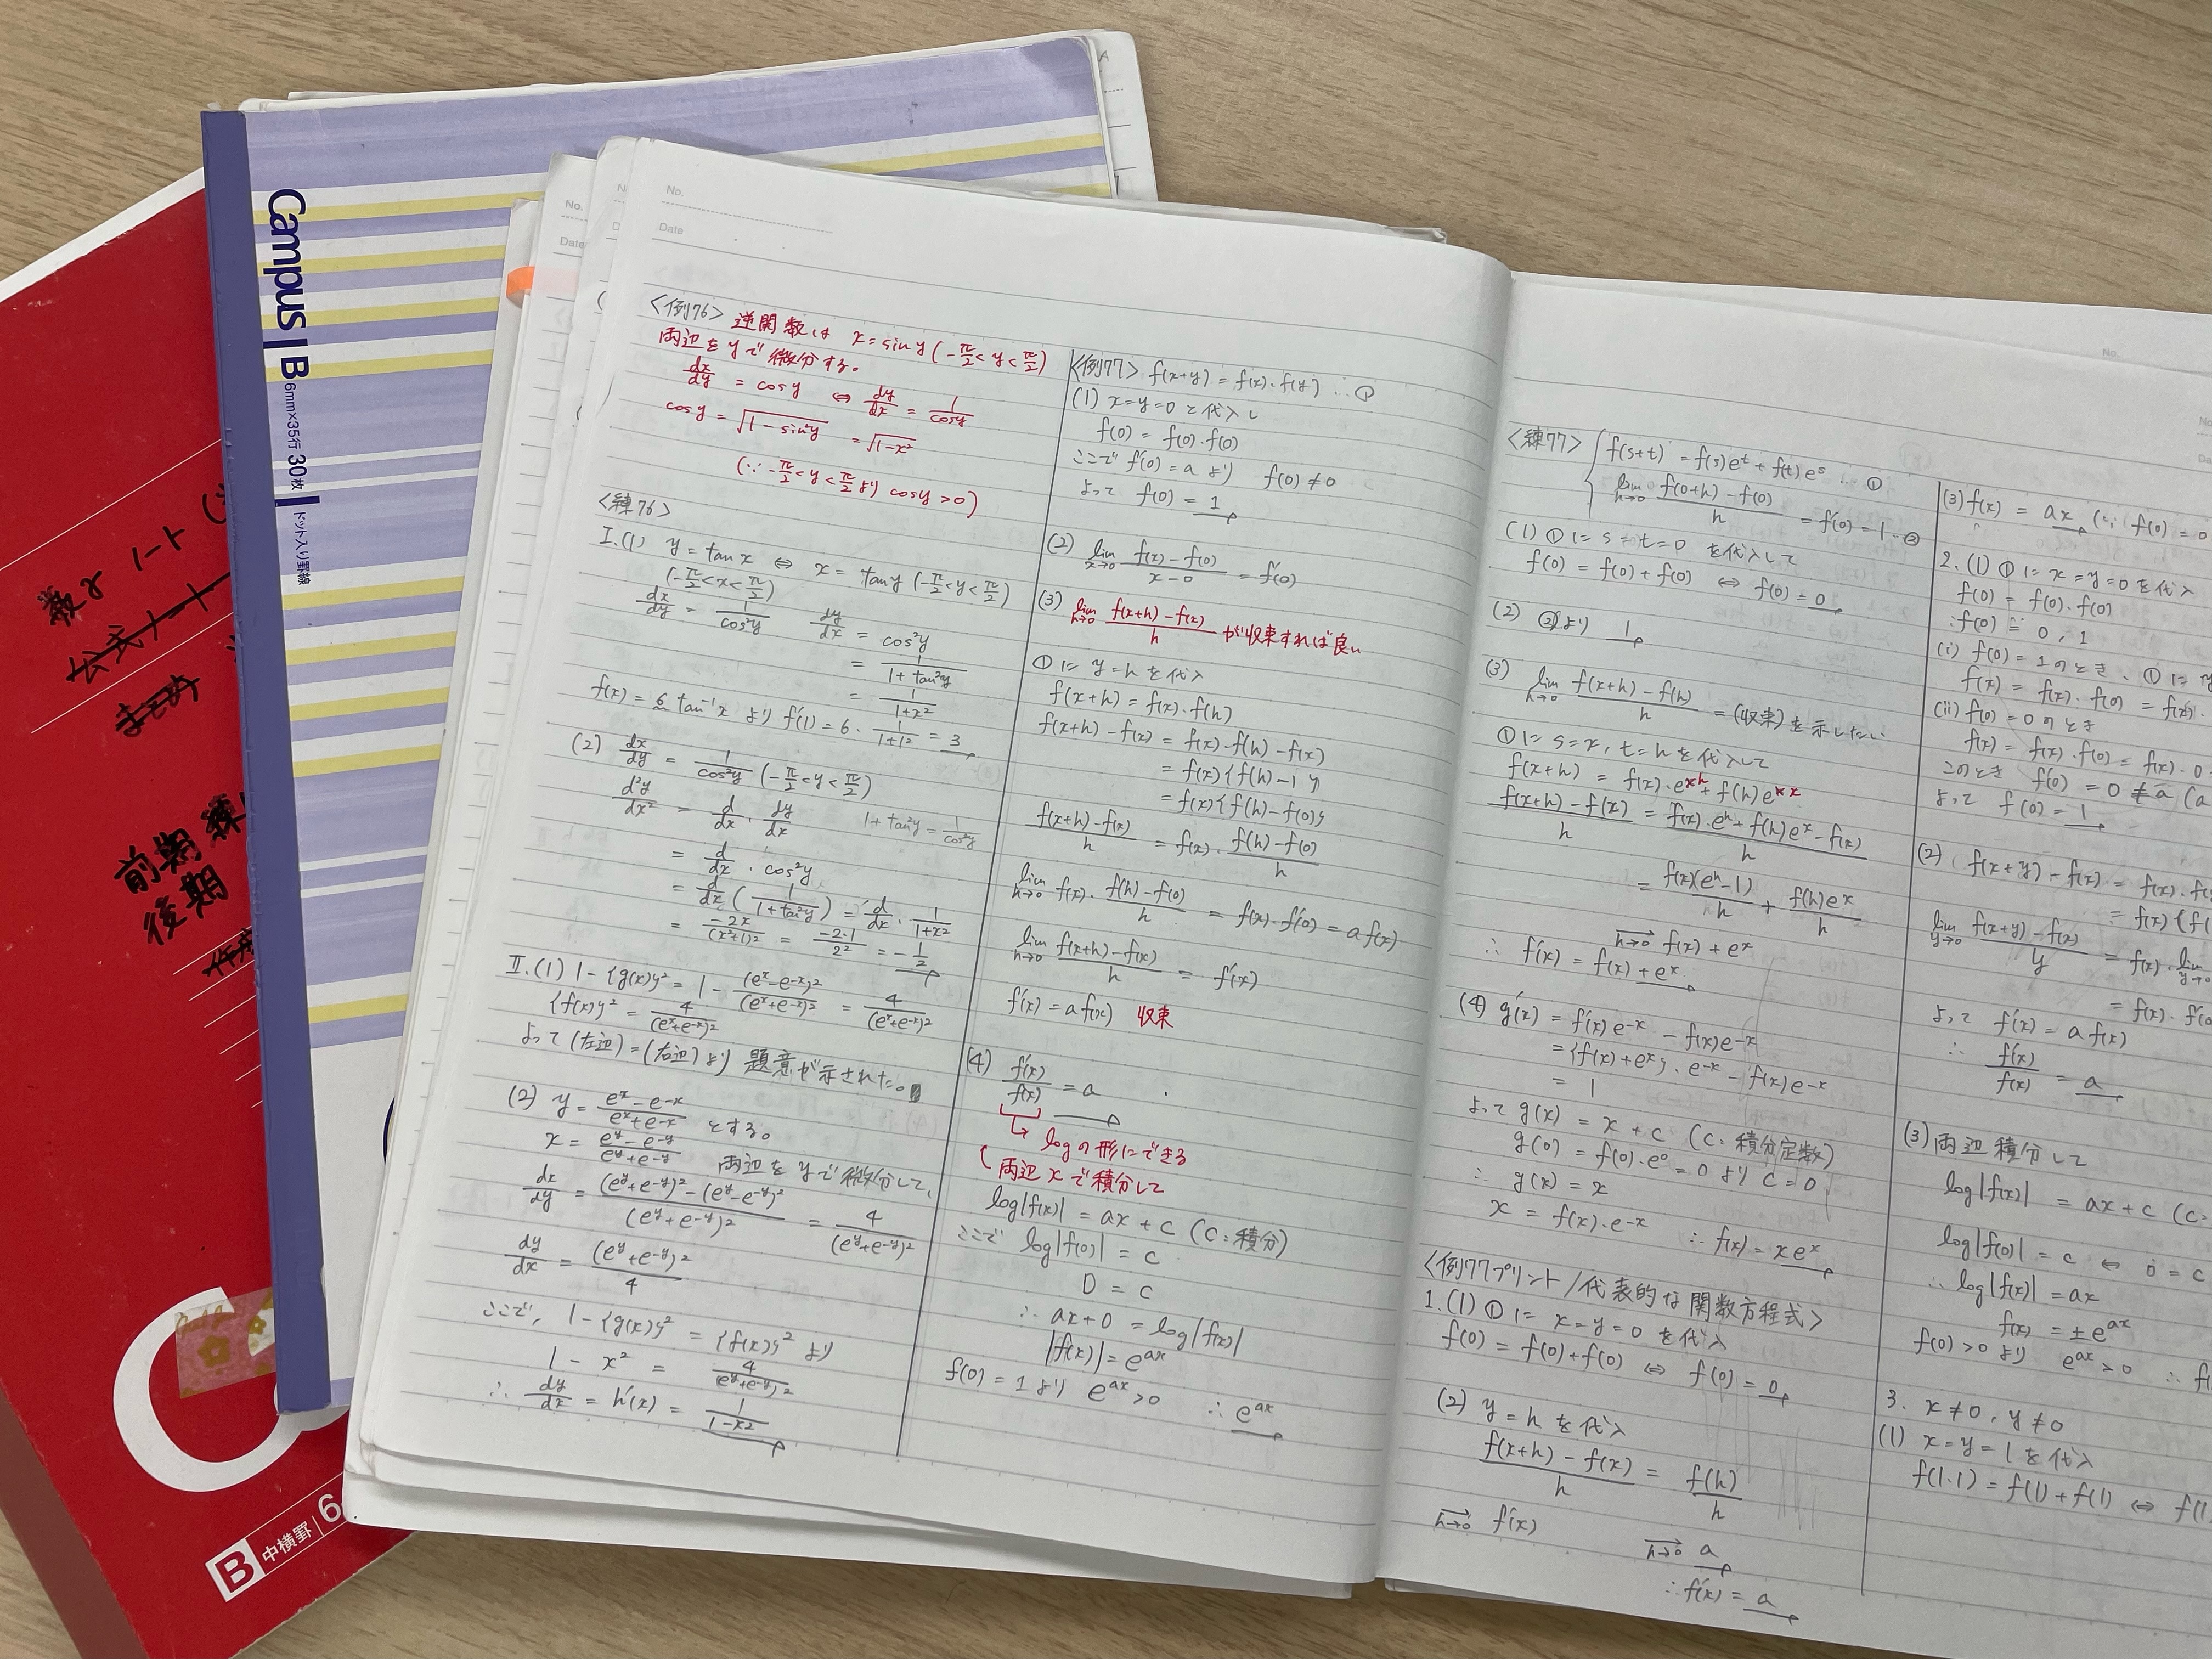 Campus B 6mm×35行 30枚 ドット入り罫線
数2 ノート
公式
前期 練
後期
B 中横罫 6
No.
Date
No.
Date
<例76> 逆関数は x = sin y (-π/2 < y < π/2)
両辺を y で微分する。
dx/dy = cos y ⇔ dy/dx = 1/cos y
cos y = √(1 - sin²y) = √(1-x²)
(∵ -π/2 < y < π/2 より cos y > 0)
<練76>
I.(1) y = tan x ⇔ x = tan y (-π/2 < y < π/2)
(-π/2 < x < π/2)
dx/dy = 1/cos²y dy/dx = cos²y
= 1/(1+tan²y)
= 1/(1+x²)
f(x) = 6 tan⁻¹x より f'(1) = 6・1/(1+1²) = 3
(2) dx/dy = 1/cos²y (-π/2 < y < π/2)
d²y/dx² = d/dx・dy/dx 1+tan²y = 1/cos²y
= d/dx・cos²y
= d/dx (1/(1+tan²y)) = d/dx・1/(1+x²)
= -2x/(x²+1)² = -2・1/2² = -1/2
II.(1) 1-{g(x)}² = 1 - (eˣ-e⁻ˣ)²/(eˣ+e⁻ˣ)² = 4/(eˣ+e⁻ˣ)²
{f(x)}² = 4/(eˣ+e⁻ˣ)²
よって (左辺)=(右辺) より 題意が示された。
(2) y = (eˣ-e⁻ˣ)/(eˣ+e⁻ˣ) とする。
x = (eʸ-e⁻ʸ)/(eʸ+e⁻ʸ) 両辺を y で微分して、
dx/dy = {(eʸ+e⁻ʸ)²-(eʸ-e⁻ʸ)²}/(eʸ+e⁻ʸ)² = 4/(eʸ+e⁻ʸ)²
dy/dx = (eʸ+e⁻ʸ)²/4
ここで, 1-{g(x)}² = {f(x)}² より
1 - x² = 4/(eʸ+e⁻ʸ)²
∴ dy/dx = h'(x) = 1/(1-x²)
<例77> f(x+y) = f(x)・f(y) … ①
(1) x=y=0 を代入し
f(0) = f(0)・f(0)
ここで f'(0) = a より f(0) ≠ 0
よって f(0) = 1
(2) lim x→0 (f(x)-f(0))/(x-0) = f'(0)
(3) lim h→0 (f(x+h)-f(x))/h が収束すれば良い
①に y=h を代入
f(x+h) = f(x)・f(h)
f(x+h)-f(x) = f(x)・f(h)-f(x)
= f(x){f(h)-1}
= f(x){f(h)-f(0)}
(f(x+h)-f(x))/h = f(x)・(f(h)-f(0))/h
lim h→0 f(x)・(f(h)-f(0))/h = f(x)・f'(0) = a f(x)
lim h→0 (f(x+h)-f(x))/h = f'(x)
f'(x) = a f(x) 収束
(4) f'(x)/f(x) = a
→ logの形にできる
両辺 x で積分して
log|f(x)| = ax + c (c:積分)
ここで log|f(0)| = c
0 = c
∴ ax+0 = log|f(x)|
|f(x)| = eᵃˣ
f(0) = 1 より eᵃˣ > 0 ∴ eᵃˣ
No.
<練77> { f(s+t) = f(s)eᵗ + f(t)eˢ … ①
lim h→0 (f(0+h)-f(0))/h = f'(0) = 1 … ②
(1) ①に s=t=0 を代入して
f(0) = f(0)+f(0) ⇔ f(0) = 0
(2) ②より 1
(3) lim h→0 (f(x+h)-f(h))/h = (収束)を示したい
①に s=x, t=h を代入して
f(x+h) = f(x)・eʰ + f(h)eˣ
(f(x+h)-f(x))/h = (f(x)・eʰ+f(h)eˣ-f(x))/h
= f(x)(eʰ-1)/h + f(h)eˣ/h
h→0 f(x)+eˣ
∴ f'(x) = f(x)+eˣ
(4) g'(x) = f'(x)e⁻ˣ - f(x)e⁻ˣ
= {f(x)+eˣ}・e⁻ˣ - f(x)e⁻ˣ
= 1
よって g(x) = x + c (c:積分定数)
g(0) = f(0)・e⁰ = 0 より c = 0
∴ g(x) = x
x = f(x)・e⁻ˣ ∴ f(x) = xeˣ
<例77プリント/代表的な関数方程式>
1.(1) ①に x=y=0 を代入
f(0) = f(0)+f(0) ⇔ f(0) = 0
(2) y=h を代入
(f(x+h)-f(x))/h = f(h)/h
h→0 f'(x) h→0 a
∴ f'(x) = a
(3) f(x) = ax (∵ f(0) = 0
2.(1) ①に x=y=0 を代入
f(0) = f(0)・f(0)
∴ f(0) = 0, 1
(i) f(0) = 1 のとき、①に
f(x) = f(x)・f(0) = f(x)
(ii) f(0) = 0 のとき
f(x) = f(x)・f(0) = f(x)・0
このとき f'(0) = 0 ≠ a
よって f(0) = 1
(2) f(x+y)-f(x) = f(x)・
= f(x){f(
lim y→0 (f(x+y)-f(x))/y = f(x)・lim y→0
= f(x)・f'(0
よって f'(x) = a f(x)
∴ f'(x)/f(x) = a
(3) 両辺積分して
log|f(x)| = ax+c (c:
log|f(0)| = c ⇔ 0 = c
∴ log|f(x)| = ax
f(x) = ±eᵃˣ
f(0) > 0 より eᵃˣ > 0 ∴ f(
3. x≠0, y≠0
(1) x=y=1 を代入
f(1・1) = f(1)+f(1) ⇔ f(1